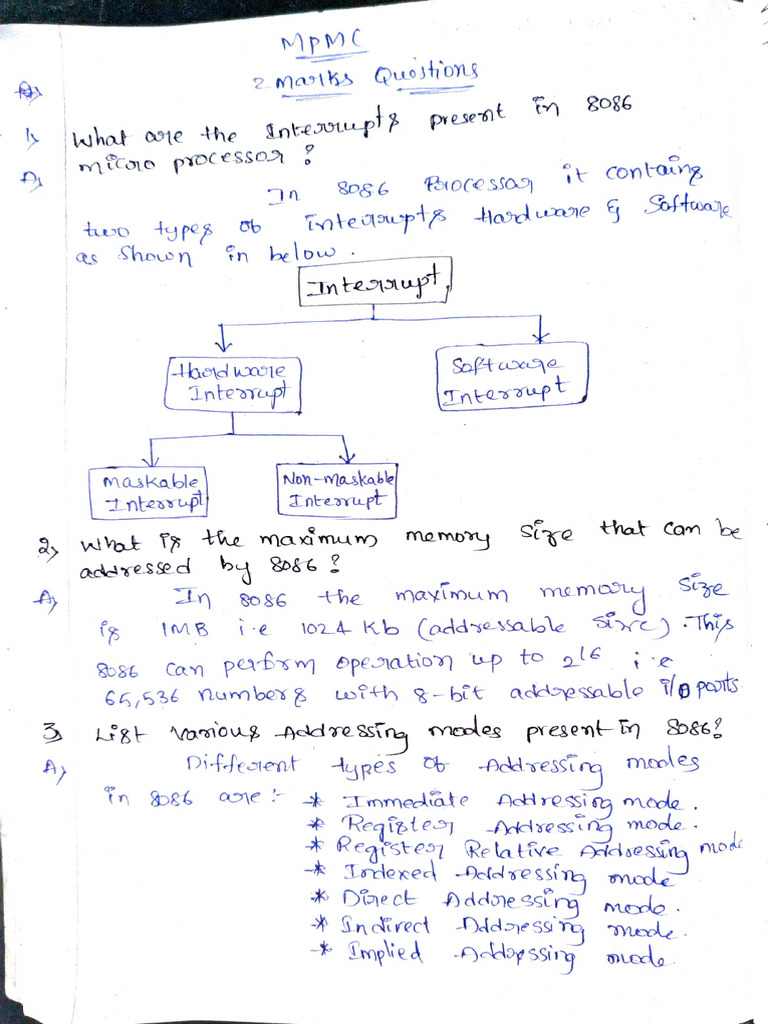 MPMC
2 Marks Questions
A)
1) What are the Interrupts present in 8086
micro processor?
A) In 8086 Processor it contains
two types of interrupts Hardware & Software
as shown in below.
Interrupt
Hardware
Interrupt
Software
Interrupt
Maskable
Interrupt
Non-maskable
Interrupt
2) What is the maximum memory size that can be
addressed by 8086?
A) In 8086 the maximum memory size
is 1MB i.e 1024 Kb (addressable size). This
8086 can perform operation up to 216 i.e
65,536 numbers with 8-bit addressable i/o ports
3) List various Addressing modes present in 8086?
A) Different types of Addressing modes
in 8086 are :- * Immediate Addressing mode.
* Register Addressing mode.
* Register Relative Addressing mode
* Indexed Addressing mode
* Direct Addressing mode.
* Indirect Addressing mode.
* Implied Addressing mode.